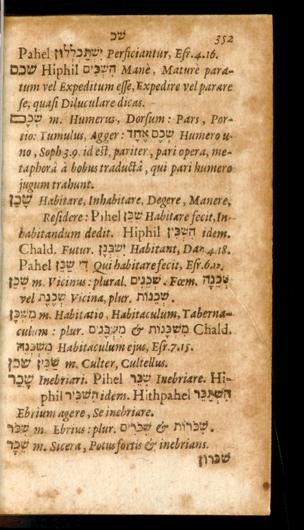 שכ 352
Pahel יִשְׁתַּכְלְלוּן Perficiantur, Esr.4.16.
שכם Hiphil הִשְׁכִּים Manè, Maturè para-
tum vel Expeditum esse, Expedire vel parare
se, quasi Diluculare dicas.
שְׁכֶם m. Humerus, Dorsum: Pars, Por-
tio: Tumulus, Agger: שְׁכֶם אֶחָד Humero u-
no, Soph 3.9. id est, pariter, pari opera, me-
taphorâ à bobus traductâ, qui pari humero
jugum trahunt.
שָׁכַן Habitare, Inhabitare, Degere, Manere,
Residere: Pihel שִׁכֵּן Habitare fecit, In-
habitandum dedit. Hiphil הִשְׁכִּין idem.
Chald. Futur. יִשְׁכְּנָן Habitant, Dan 4.18.
Pahel דִּי שַׁכִּן Qui habitare fecit, Esr.6.12.
שָׁכֵן m. Vicinus: plural. שְׁכֵנִים. Fœm. שְׁכֵנָה
vel שְׁכֶנֶת Vicina, plur. שְׁכֵנוֹת.
מִשְׁכָּן m. Habitatio, Habitaculum, Taberna-
culum: plur. מִשְׁכָּנִים & מִשְׁכָּנוֹת Chald.
מִשְׁכְּנֵהּ Habitaculum ejus, Esr.7.15.
שכן שַׂכִּין m. Culter, Cultellus.
שָׁכַר Inebriari. Pihel שִׁכֵּר Inebriare. Hi-
phil הִשְׁכִּיר idem. Hithpahel הִשְׁתַּכֵּר
Ebrium agere, Se inebriare.
שִׁכּוֹר m. Ebrius: plur. שִׁכּוֹרִים & שִׁכּוֹרוֹת.
שֵׁכָר m. Sicera, Potus fortis & inebrians.
שכרון